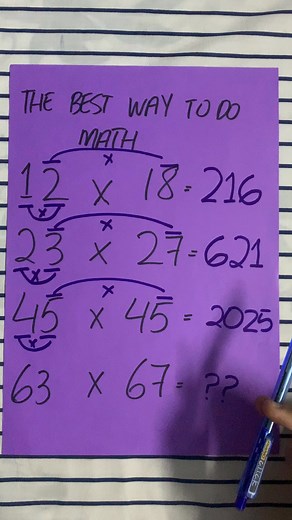 THE BEST WAY TO DO
MATH
12 x 18 = 216
23 x 27 = 621
45 x 45 = 2025
63 x 67 = ??